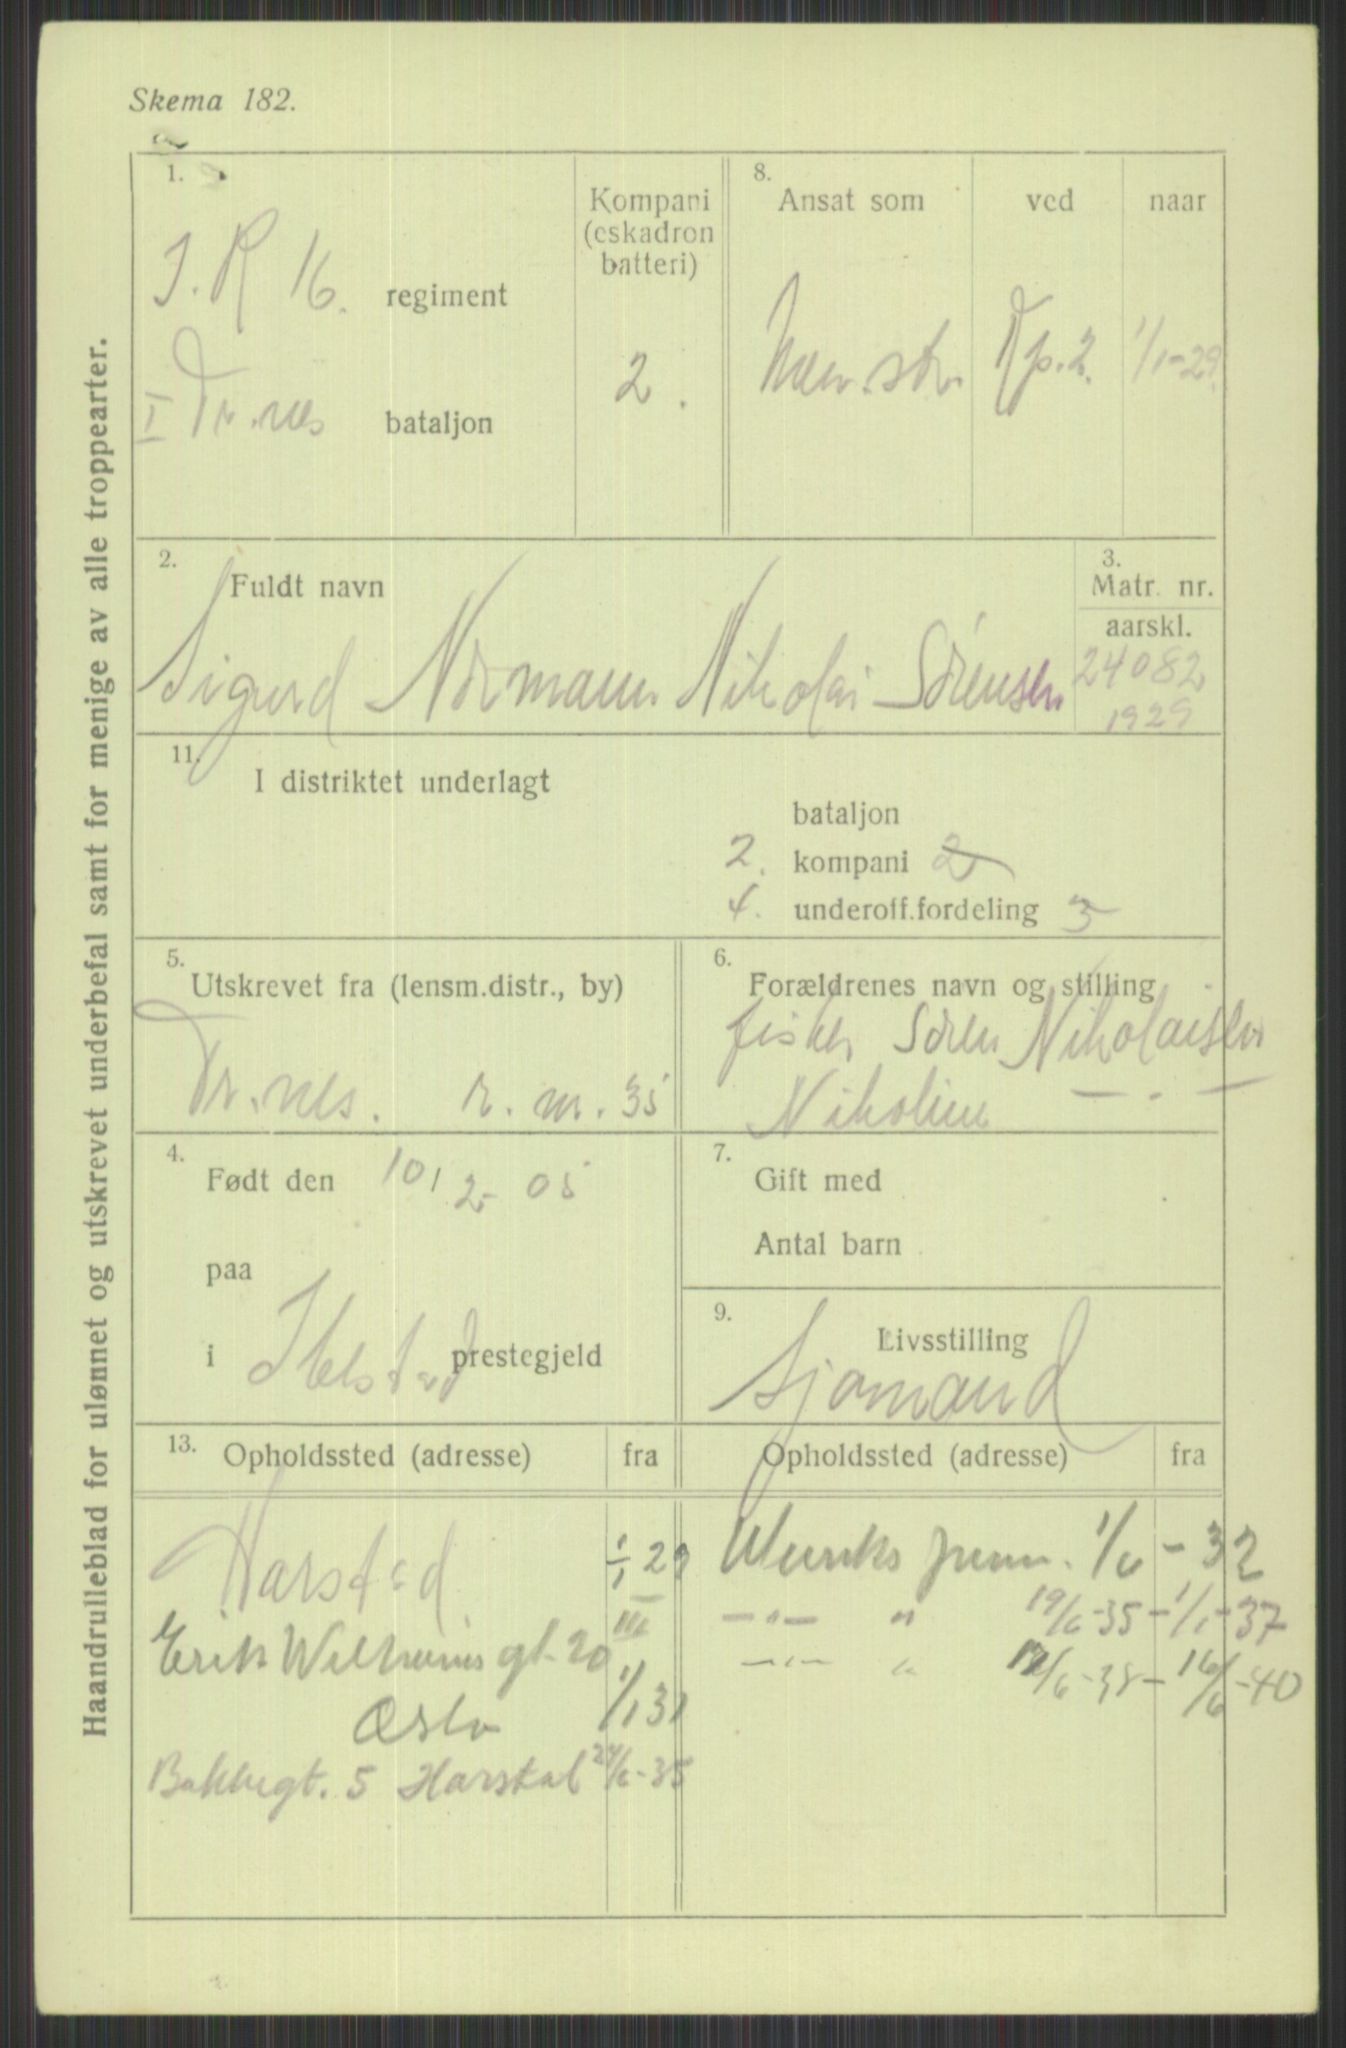 Skema 182.
Haandrulleblad for ulønnet og utskrevet underbefal samt for menige av alle troppearter.
1.
I. R 16. regiment
I Tr.nes bataljon
Kompani
(eskadron
batteri)
2.
8.
Ansat som
ved
naar
Kp. 2.
1/1-29.
2.
Fuldt navn
Sigurd Normann Nikolai Sørensen
3.
Matr. nr.
aarskl.
24082
1929
11.
I distriktet underlagt
bataljon
2. kompani 2
4. underoff.fordeling 3
5.
Utskrevet fra (lensm.distr., by)
Tr.nes. r. m. 35
6.
Forældrenes navn og stilling
fisker Sören Nikolaisen
Nikoline — " —
4.
Født den 10/2- 05
paa
i Ibestad prestegjeld
7.
Gift med
Antal barn
9.
Livsstilling
Sjømand
13.
Opholdssted (adresse)
fra
Opholdssted (adresse)
fra
Harstad 1/1 29
Oslo 1/1 31
Bakkegt. 5 Harstad 24/6-35
Utenriks perm. 1/6 - 32
— " — " 19/6-35 - 1/1-37
— " — " 12/6-38 - 16/6-40